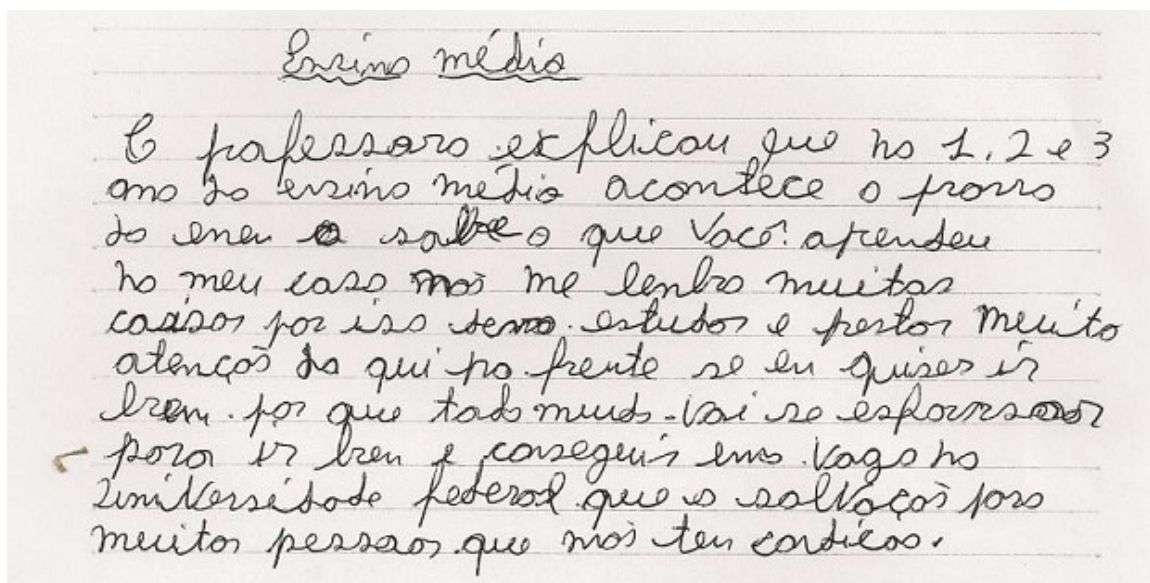 Ensino médio
O pofessoro explicou que no 1, 2 e 3
ano do ensino médio acontece o provo
do enen e sobre o que você aprendeu
no meu caso não me lenbro muitas
coisas por iso temo estudor e pestor muito
atenção da qui pa frente se eu quiser ir
bem por que todo mundo vai se esforsar
pora ir bem e conseguir uma vaga na
universidade federal que e salvação para
muitos pessoas que não ten condicão.